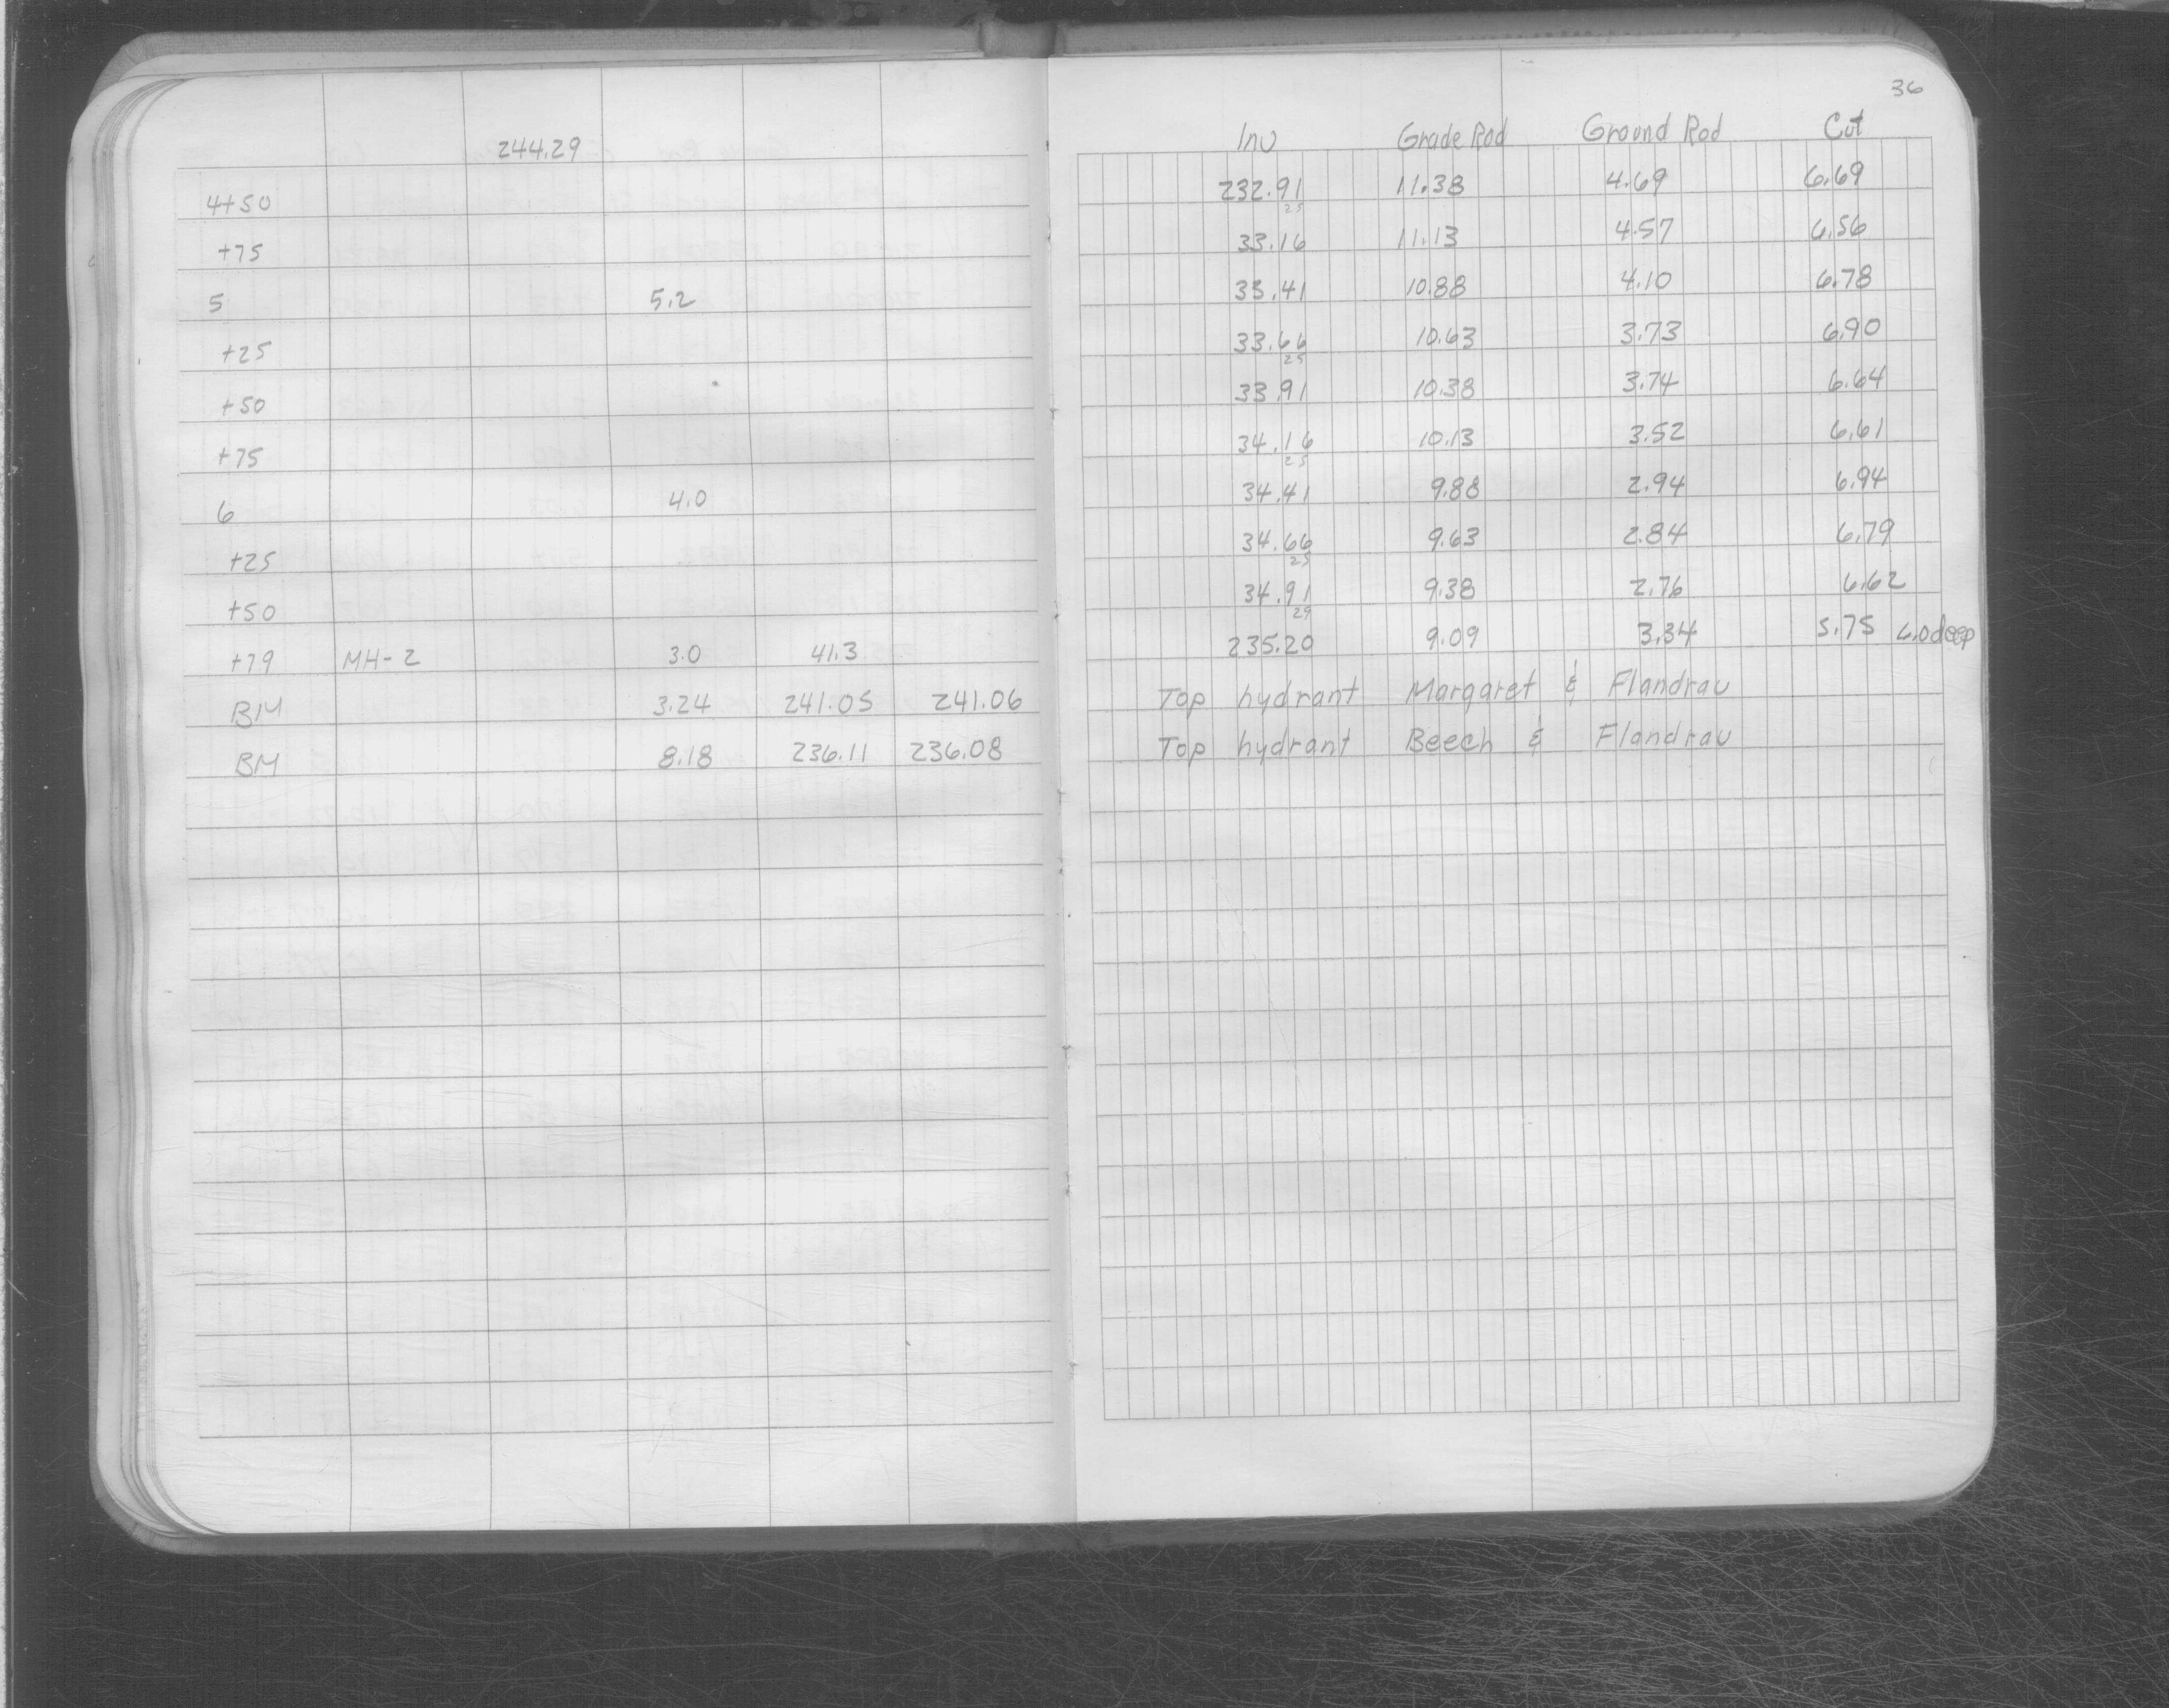 36
244.29 Inv Grade Rod Ground Rod Cut
4+50 232.91 11.38 4.69 6.69
25
+75 33.16 11.13 4.57 6.56
5 5.2 33.41 10.88 4.10 6.78
+25 33.66 10.63 3.73 6.90
25
+50 33.91 10.38 3.74 6.64
+75 34.16 10.13 3.52 6.61
25
6 4.0 34.41 9.88 2.94 6.94
+25 34.66 9.63 2.84 6.79
25
+50 34.91 9.38 2.76 6.62
29
+79 MH-2 3.0 41.3 235.20 9.09 3.34 5.75 6.0 deep
BM 3.24 241.05 241.06 Top hydrant Margaret & Flandrau
BM 8.18 236.11 236.08 Top hydrant Beech & Flandrau